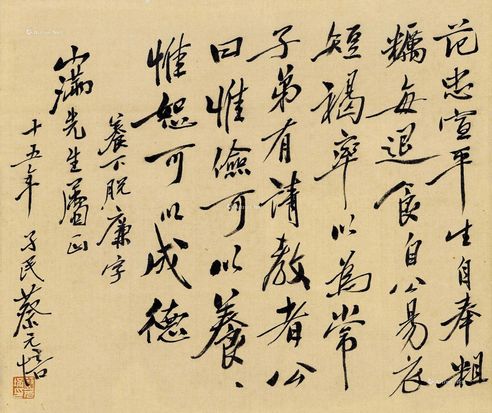 范忠宣平生自奉粗
糲每退食自公易衣
短褐率以為常
子弟有請教者公
曰惟儉可以養、
惟恕可以成德
養下脫廉字
先生屬正
十五年 孑民蔡元培